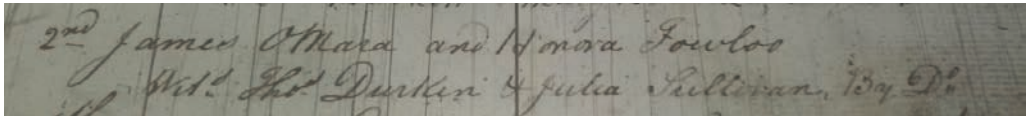 2nd James OMara and Honora Fowloo
Wits. Thos. Durkin & Julia Sullivan, By Do.